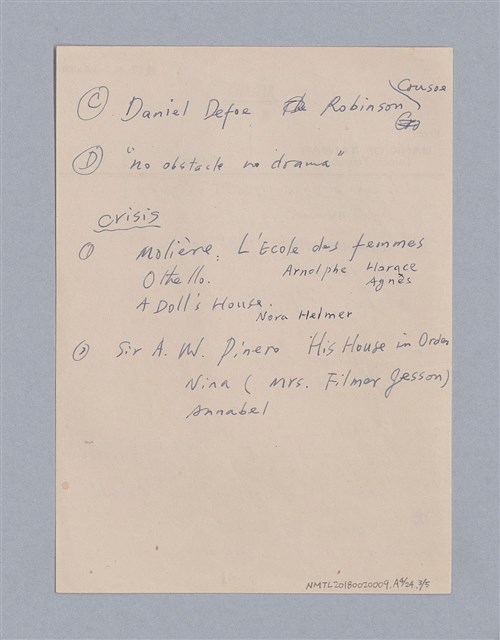 Ⓒ Daniel Defoe Robinson Crusoe
Ⓓ "no obstacle no drama"
crisis
① Molière. L'Ecole des femmes
Othello. Arnolphe Horace
Agnès
A Doll's House.
Nora Helmer
② Sir A. W. Pinero His House in Order
Nina (Mrs. Filmer Jesson)
Annabel
NMTL20180020009.A4/24.3/5